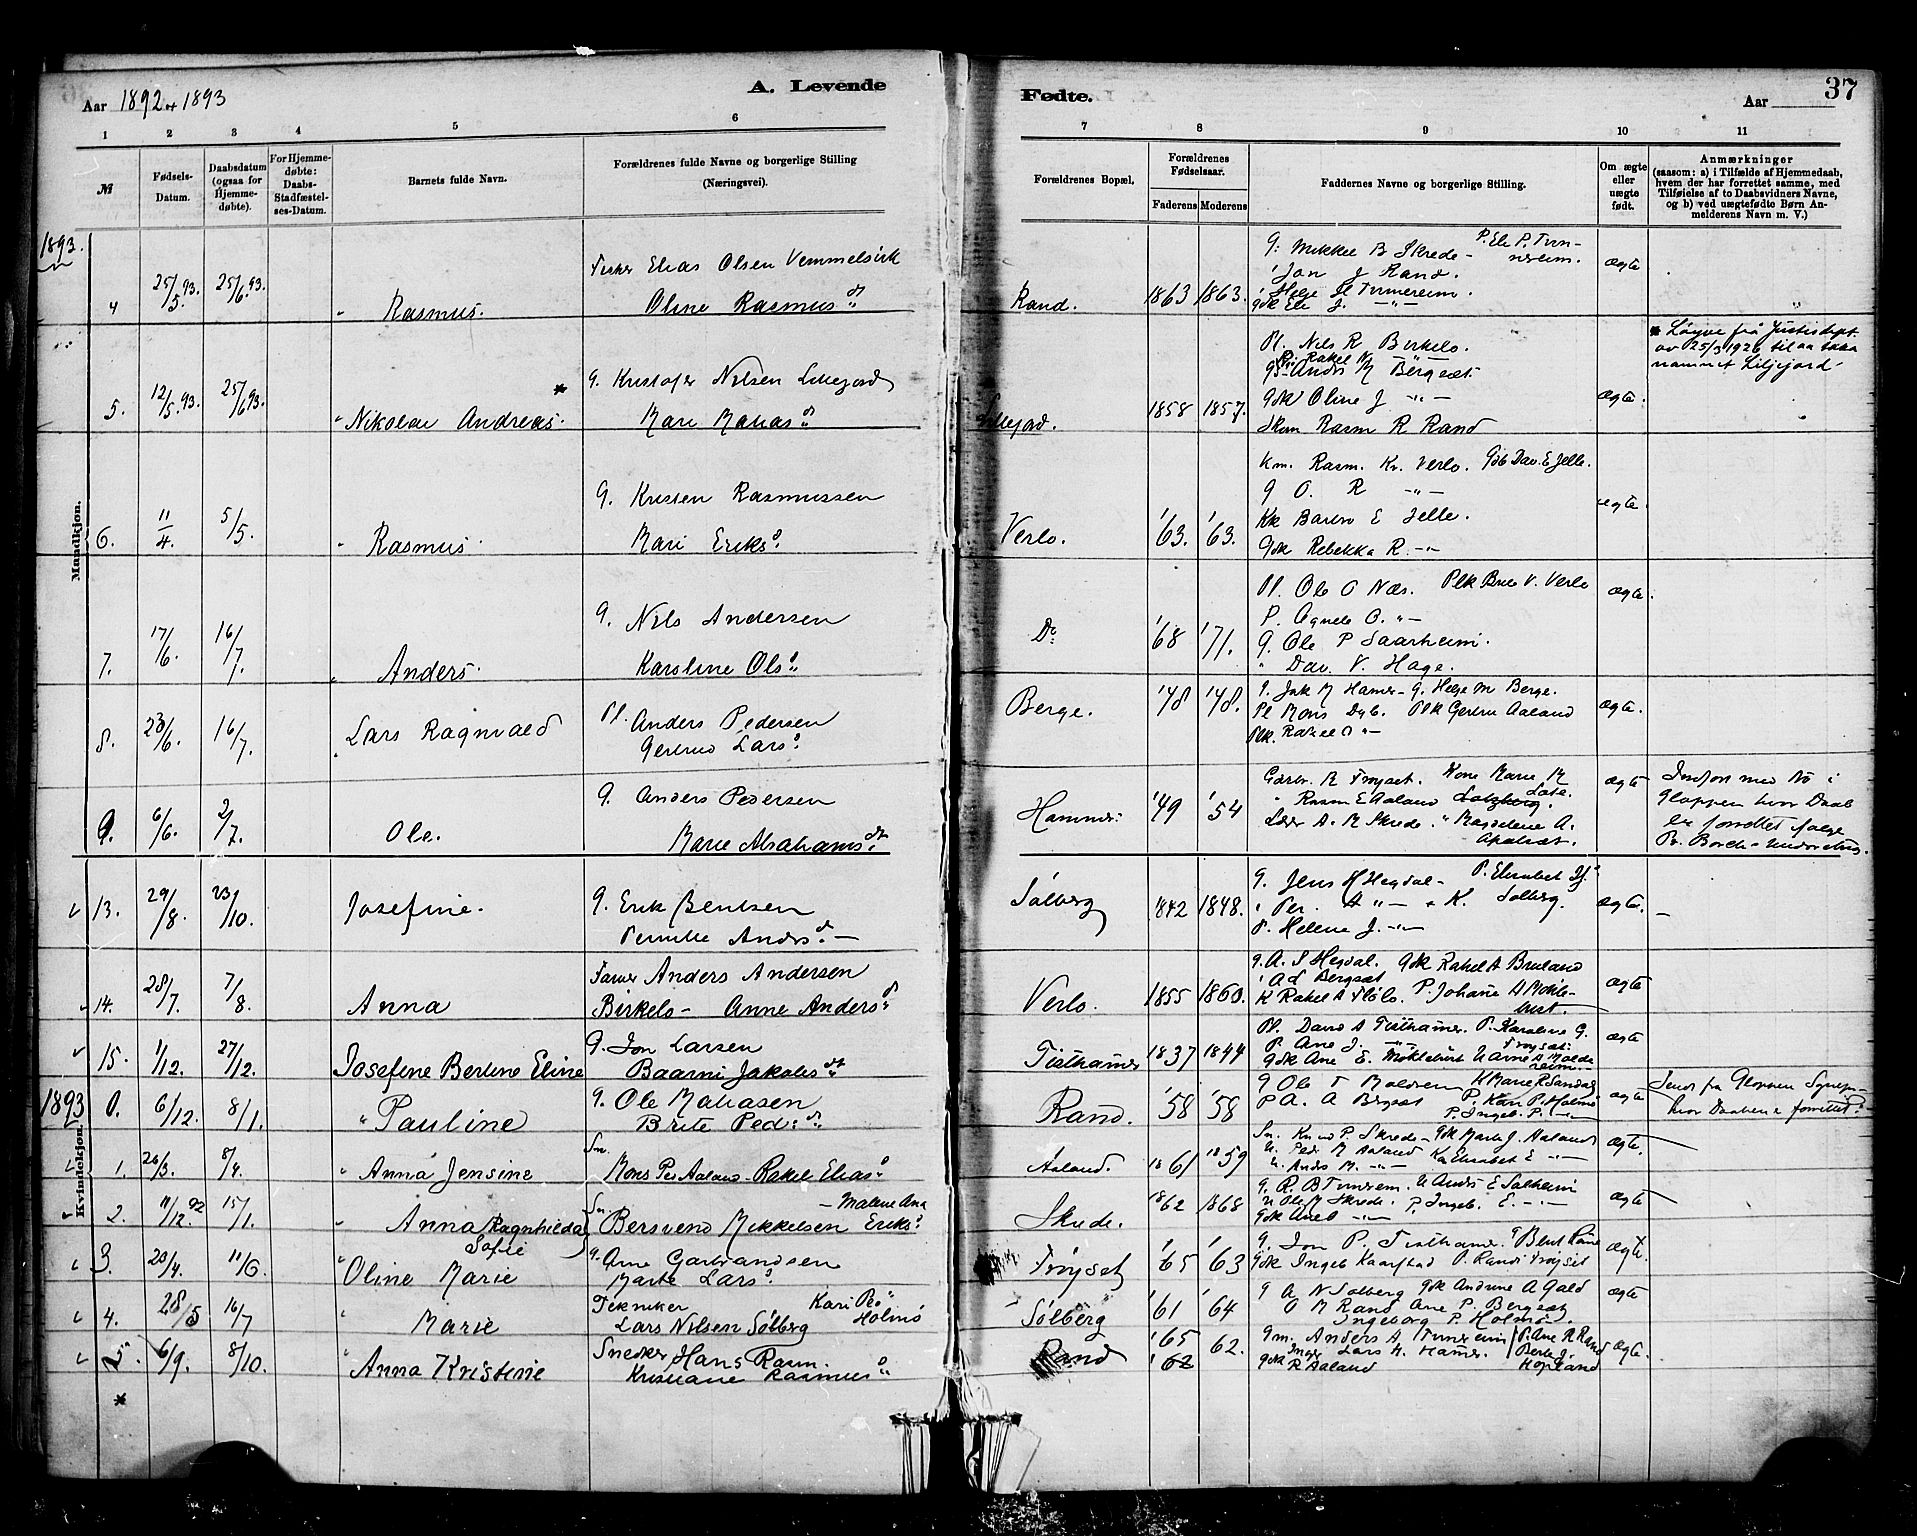 Aar 1892 og 1893
A. Levende
Fødte.
Aar
37
1 2 3 4 5 6 7 8 9 10 11
№
Fødsels-
Datum.
Daabsdatum
(ogsaa for
Hjemme-
døbte).
For Hjemme-
døbte:
Daabs-
Stadfæstel-
ses-Datum.
Barnets fulde Navn.
Forældrenes fulde Navne og borgerlige Stilling
(Næringsvei).
Forældrenes Bopæl.
Forældrenes
Fødselsaar.
Faderens Moderens
Faddernes Navne og borgerlige Stilling.
Om ægte
eller
uægte
født.
Anmærkninger
(saasom: a) i Tilfælde af Hjemmedaab,
hvem der har forrettet samme, med
Tilføielse af to Daabsvidners Navne,
og b) ved uægtefødte Børn An-
melderens Navn m. V.)
Mandkjøn.
1893.
4 25/5 93. 25/6 93. Rasmus.
Elias Olsen Vemmelsvik
Oline Rasmusd.
Rand. 1863 1863.
G. Mikkel B Skrede - P. Ele P. Tvin-
nereim.
Jon J Rand.
Helge H Tvinnereim.
Gdk Ele J. -"-
ægte
5. 12/5 93. 25/6 93. Nikolai Andreas. *
G. Kristofer Nilsen Lillejord
Mari Matiasd.
Lillejord. 1858 1857.
Pl. Nils R Birkelo.
P. Rakel N -"-
G. Anders M Bergsæt.
Gdk Oline J -"-
Rasm R Rand
ægte.
* Løyve frå Justisdept.
av 25/3 1926 til aa taka
namnet Liljejord.
6. 11/4. 5/5. Rasmus.
G. Kristen Rasmussen
Mari Eriksd.
Verlo. '63. '63.
Km. Rasm. Kr. Verlo. Gdk Dav. E Jelle.
G O. R -"-
Kk Baren E Jelle.
Gdk Rebekka R. -"-
ægte.
7. 17/6. 16/7. Anders.
G. Nils Andersen
Karoline Olsd.
Do '68 '71.
Pl. Ole O Næs. Plk Brite V. Verlo
P. Agnete O. -"-
G. Ole P Saarheim.
" Dav. V. Hage.
ægte.
8. 23/6. 16/7. Lars Ragnvald
Pl. Anders Pedersen
Gertrud Larsd.
Berge. '48 '48.
Jak M Hamre - G. Helge M Berge.
Pl Mons Dyb. Plk Gertru Aaland
Plk. Rakel O "-
ægte.
9. 6/6. 2/7. Ole.
G. Anders Pedersen
Marie Abrahamsdt.
Hammer '49 '54
Garbr. R Frøyset. Kone Marie M
Lote.
Rasm E Aaland
Lars A. M Skrede. " Magdelene A.
Apalset.
ægte
Indført med No i
Gloppen hvor Daab
er forrettet
Kvindekjøn.
13. 29/8. 23/10. Josefine.
G. Erik Bentsen
Pernille Andrsd. -
Solberg 1842 1848.
G. Jens H Hegdal - P. Elisabet
" Per. A "- K. Solberg.
P. Helene J. -"-
ægte. -
14. 28/7. 7/8. Anna
Anders Andersen
Birkelo - Anne Andersd.
Verlo. 1855 1860.
G. A. S Hegdal. Gdk Rakel A Bruland
A d Bergsæt
K Rakel A Flolo. P. Johane A Mokle-
bust.
ægte
15. 1/12. 27/12. Josefine Berline Eline
G. Jon Larsen
Baarni Jakobsdt.
Tisthamer 1837 1844
Pl. David A Tisthamer. P. Karoline G.
Frøyset.
P. Ane J. -"-
Gdk Ane E. Moklebust
ægte
1893 0. 6/12. 8/1. " Pauline
G. Ole Matiasen
Brite Ped.d.
Rand. '58 '58
G Ole T Moldreim K Marie R Sandal
P A. A Bergsæt P. Kari P. Holmø
P. Ingeb. P. -"-
ægte
1. 26/3. 8/4. " Anna Jensine
Mons Per Aaland - Rakel Eliasd.
Aaland. 1861 1859
Knud P. Skrede - Gdk Marte J. Aaland
U. Peder M Aaland Elisabet E -"-
U. Anders M. -"-
ægte.
2. 11/12. 92 15/1. " Anna Ragnhilda
Sofie
Bersvend Mikkelsen - Malene Ana
Eriksd.
Skrede. 1862 1868
G. R. B Tvinnreim. U Anders E Solheim
U Ole M Skrede. P. Ingeb. E. -"-
Gdk Ane -"-
ægte
3. 20/4. 11/6. " Oline Marie
G. Arne Garbrandsen
Marte Larsd.
Frøyset '65 '63
G. Jon P. Tisthamer.
Gdk Ingeb Kaarstad P. Randi Frøyset
ægte.
4. 28/5 16/7 " Marie
Tekniker Kari
Lars Nilsen Solberg Holmø
Solberg '61 '64
G A N Solberg Gdk Andrine A Gald
O M Rand Ane P. Bergsæt
Ingeborg P Holmø.
ægte
5 6/9. 8/10. " Anna Kristine
Snedker Hans Rasm.
Kristiane Rasmusd.
Rand '65 '62 62.
Gm. Anders A Tvinnreim P. Ane R Rand
Lars H. Hamer. Berte J.
Gdk R Aaland Hopland
ægte.
*